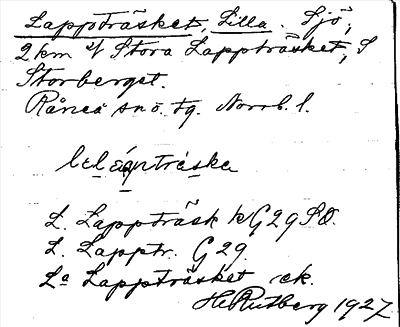 Lappträsket, Lilla. Sjö,
2 km V Stora Lappträsket, S
Storberget.
Råneå sn o. tg. Norrb. l.
L. Lappträsk k G29SO.
L. Lapptr. G29.
La Lappträsket ek.
H Rutberg 1927